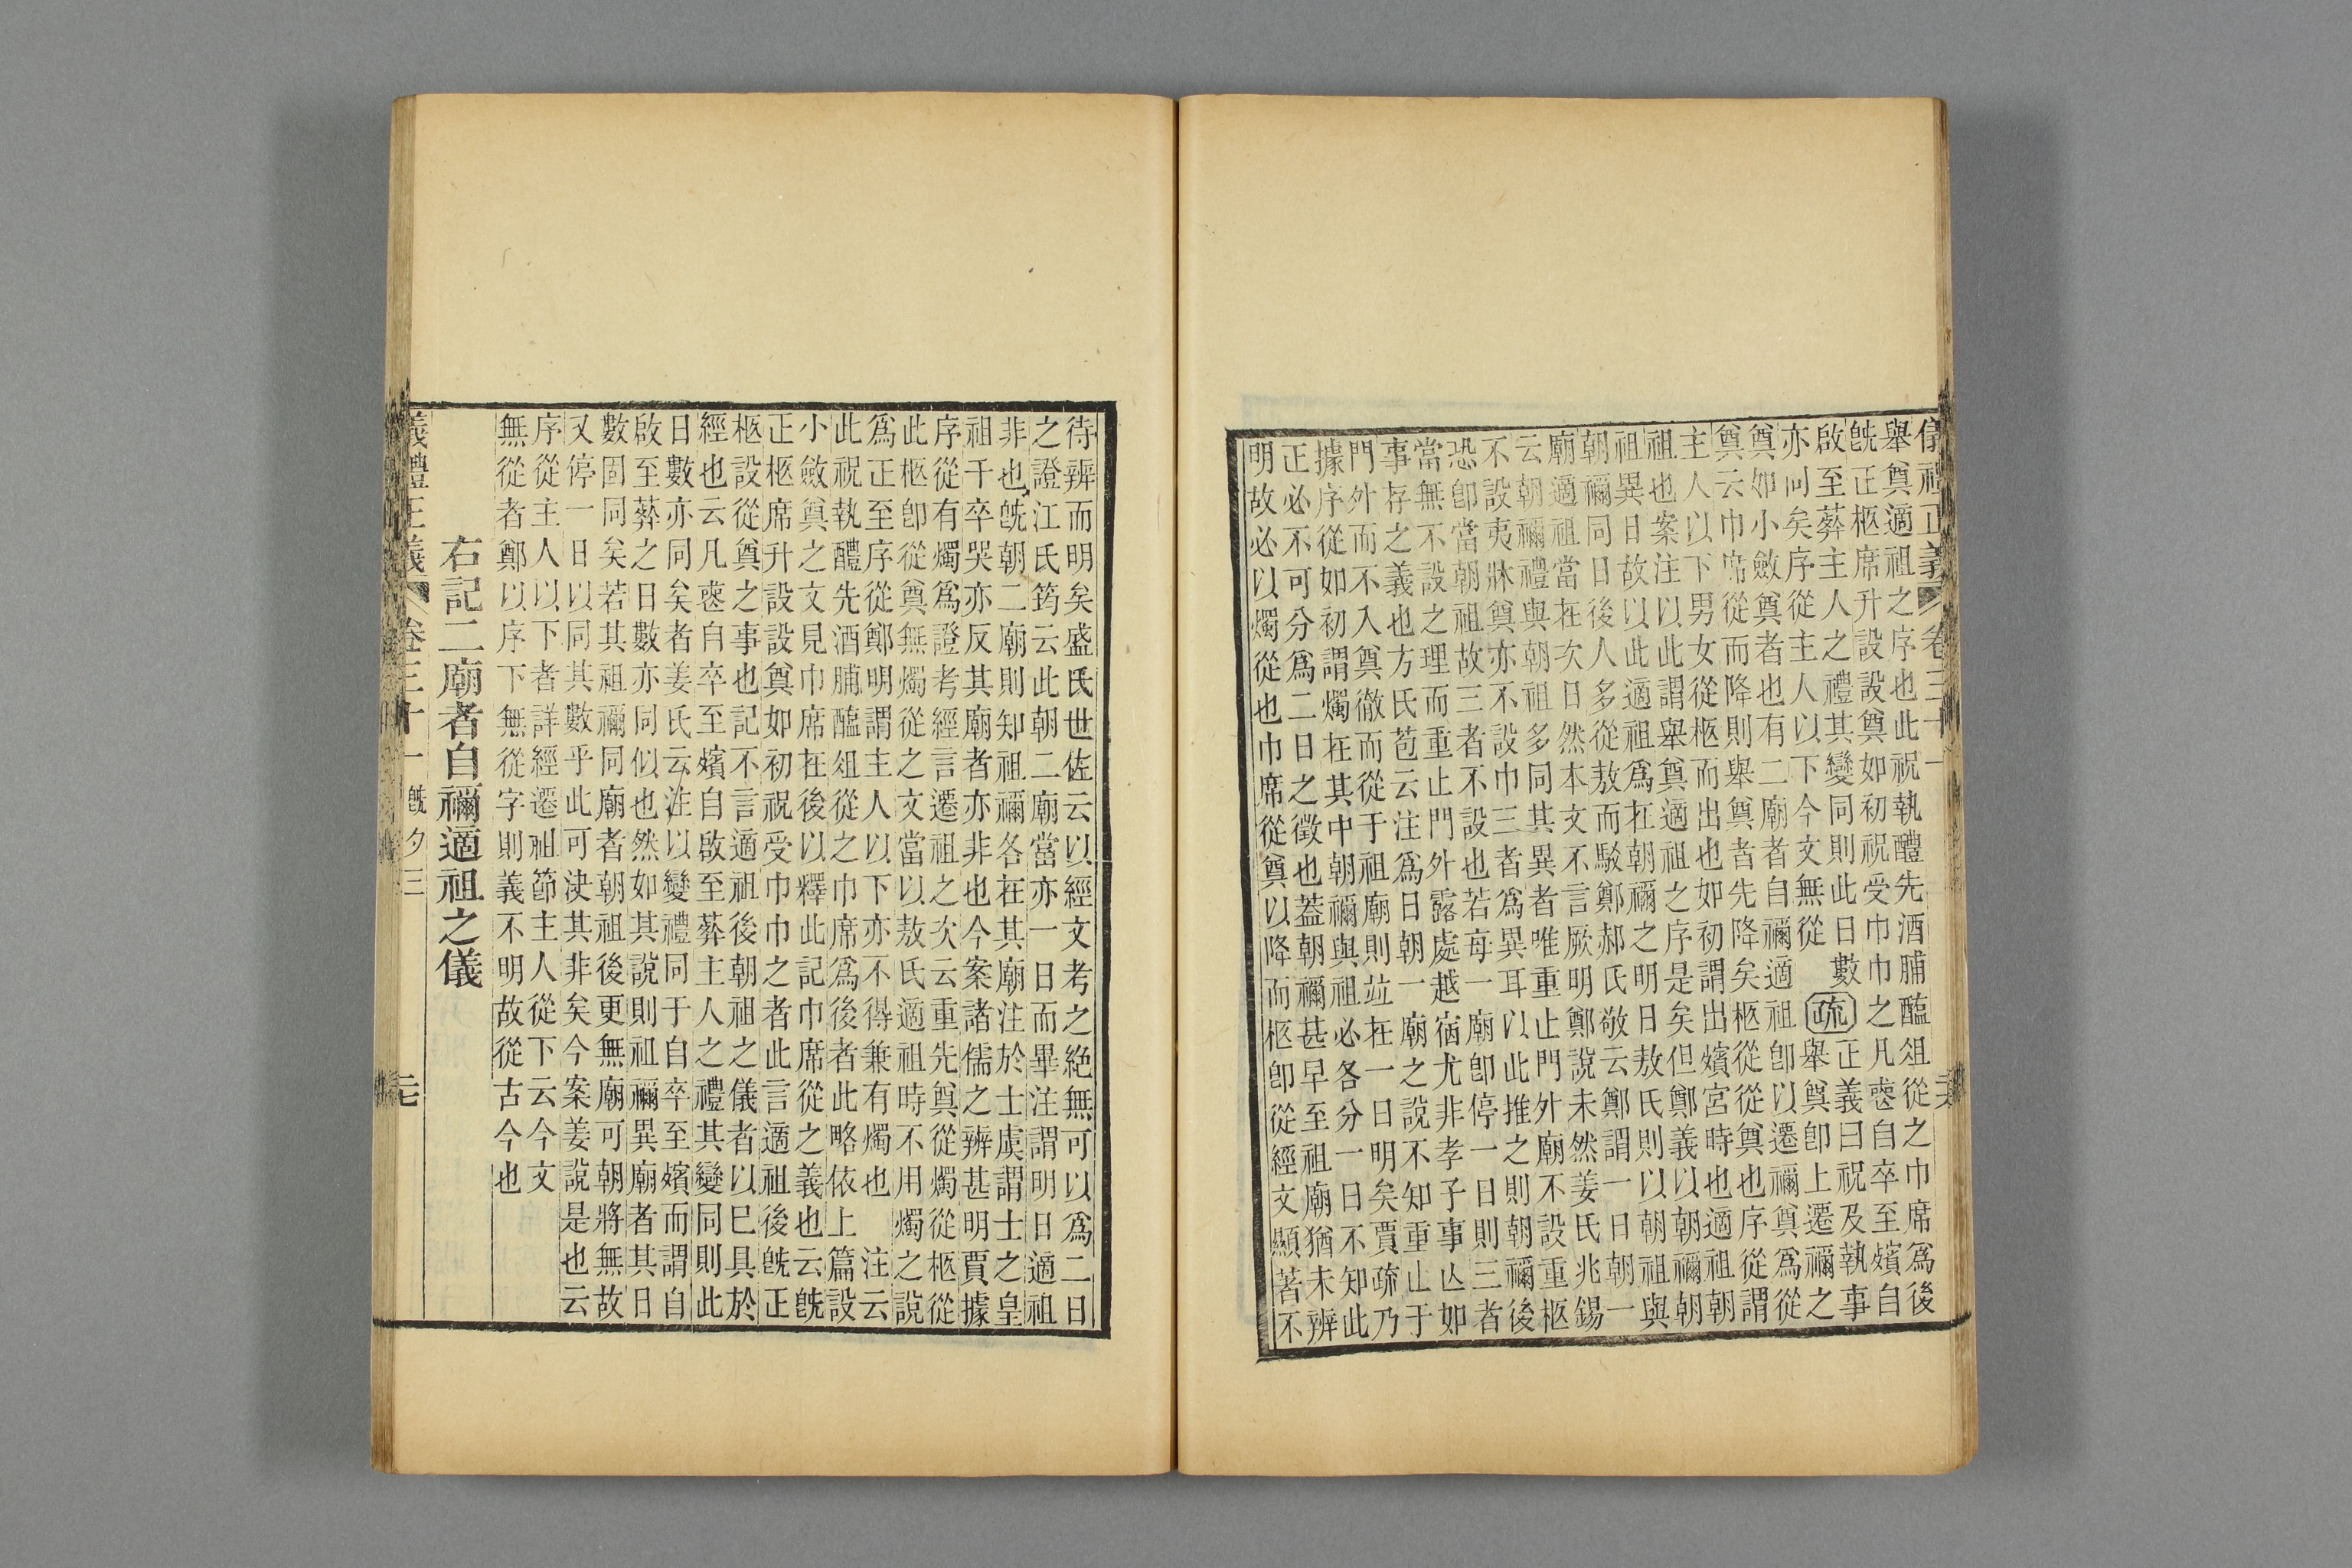 儀禮正義 卷三十一
舉奠適祖之序也此祝執醴先酒脯醢俎從之巾席爲後
旣正柩席升設設奠如初祝受巾巾之凡喪自卒至殯自
啟至葬主人之禮其變同則此日數
亦同矣序從主人以下今文無從
疏
正義曰祝及執事
舉奠卽上遷禰之
奠如小斂奠者也有二廟者自禰適祖卽以遷禰奠爲從
奠云巾席從而降則舉奠者先降矣柩從從奠也序從謂
主人以下男女從柩而出也如初謂出殯宮時也適祖朝
祖也案注以此謂舉奠適祖之序是矣但鄭義以朝禰朝
祖異日故以此適祖爲在朝禰之明日敖氏則以朝祖與
朝禰同日後人多從敖而駁鄭郝氏敬云鄭謂一日朝一
廟適祖當在次日然本文不言厥明鄭說未然姜氏兆錫
云朝禰禮與朝祖多同其異者唯重止門外廟不設重柩
不設夷牀奠亦不設巾三者爲異耳以此推之則朝禰後
恐卽當朝祖故三者不設也若每一廟卽停一日則三者
當無不設之理而重止門外露處越宿尤非孝子事亾如
事存之義也方氏苞云注爲日朝一廟之說不知重止于
門外而不入奠徹而從于祖廟則竝在一日明矣賈疏乃
據序從如初謂燭在其中朝禰與祖必各分一日不知此
正必不可分爲二日之徵也蓋朝禰甚早至祖廟猶未辨
明故必以燭從也巾席從奠以降而柩卽從經文顯著不
待辨而明矣盛氏世佐云以經文考之絶無可以爲二日
之證江氏筠云此朝二廟當亦一日而畢注謂明日適祖
非也旣朝二廟則知祖禰各在其廟注於士虞謂士之皇
祖于卒哭亦反其廟者亦非也今案諸儒之辨甚明賈據
序從有燭爲證考經言遷祖之次云重先奠從燭從柩從
此柩卽從奠無燭從之文當以敖氏適祖時不用燭之說
爲正至序從鄭明謂主人以下亦不得兼有燭也 注云
此祝執醴先酒脯醢俎從之巾席爲後者此略依上篇設
小斂奠之文見巾席在後以釋此記巾席從之義也云旣
正柩席升設設奠如初祝受巾巾之者此言適祖後旣正
柩設從奠之事也記不言適祖後朝祖之儀者以已具於
經也云凡喪自卒至殯自啟至葬主人之禮其變同則此
日數亦同矣者姜氏云注以變禮同于自卒至殯而謂自
啟至葬之日數亦同似也然如其說則祖禰異廟者其日
數固同矣若其祖禰同廟者朝祖後更無廟可朝將無故
又停一日以同其數乎此可決其非矣今案姜說是也云
序從主人以下者詳經遷祖節主人從下云今文
無從者鄭以序下無從字則義不明故從古今也
右記二廟者自禰適祖之儀
義禮正義 卷三十一 旣夕三